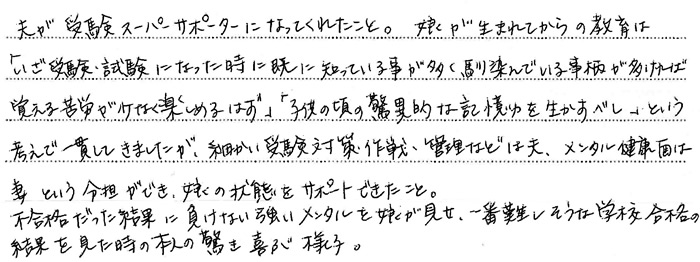 夫が受験スーパーサポーターになってくれたこと。娘が生まれてからの教育は
「いざ受験・試験になった時に既に知っている事が多く馴染んでいる事柄が多ければ
覚える苦労が少なく楽しめるはず」「子供の頃の驚異的な記憶力を生かすべし」という
考えで一貫してきましたが、細かい受験対策・作戦、管理などは夫、メンタル健康面は
妻という分担ができ、娘の状態をサポートできたこと。
不合格だった結果に負けない強いメンタルを娘が見せ、一番難しそうな学校合格の
結果を見た時の本人の驚き喜ぶ様子。